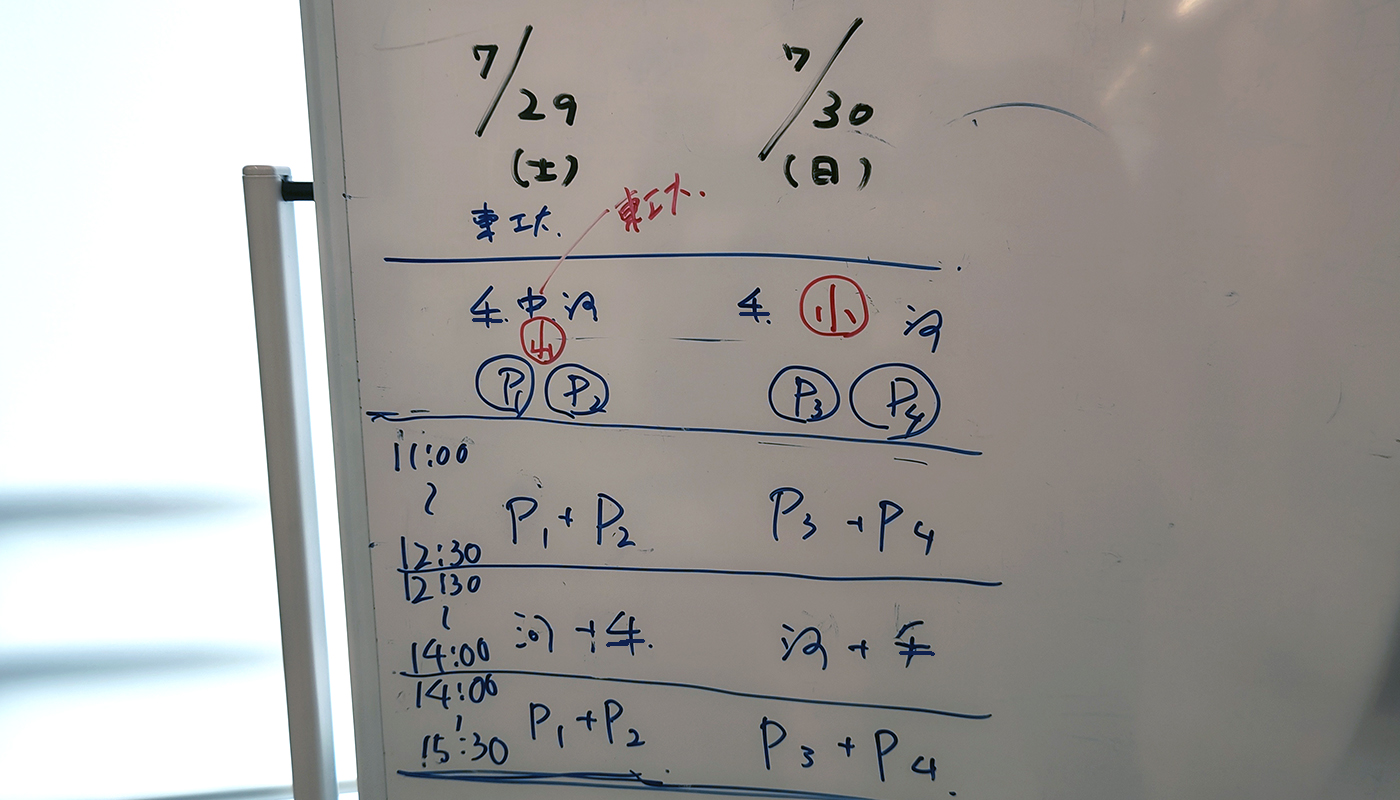 7/29 7/30
(土) (日)
東工大. 東工大.
中 小
小
P1 P2 P3 P4
11:00
~
12:30 P1+P2 P3+P4
12:30
~
14:00 + +
14:00
~
15:30 P1+P2 P3+P4